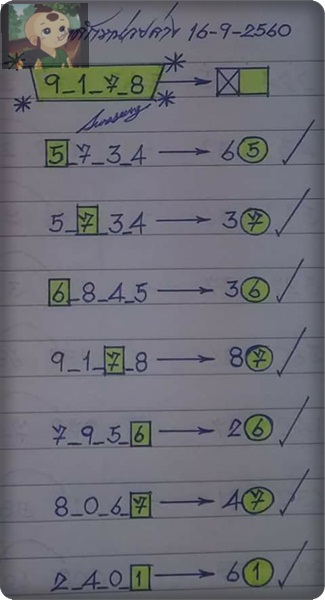 16-9-2560
9_1_7_8 → X
5_7_3_4 → 6 5 ✓
5_7_3_4 → 3 7 ✓
6_8_4_5 → 3 6 ✓
9_1_7_8 → 8 7 ✓
7_9_5_6 → 2 6 ✓
8_0_6_7 → 4 7 ✓
2_4_0_1 → 6 1 ✓